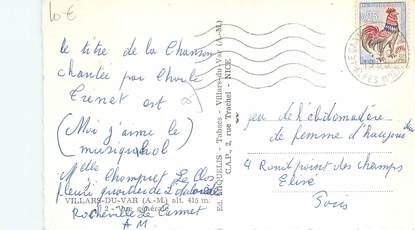 10 €
le titre de la Chanson
chantée par Charle
Trenet est
(Moi j'aime le)
musique hol
Melle Chomprey Le Clos
fleuri
VILLARS-DU-VAR (A.-M.) alt. 415 m.
2 - Vue générale
Rocheville Le Cannet
A M.
Ed. MIQUELIS - Tabacs - Villars-du-Var (A.-M.)
C.A.P., 2, rue Trachel - NICE
0,25
jeu de l'hebdomadaire
de femme d'aujourd'hui
4 Rond point des champs
Elisé
Paris